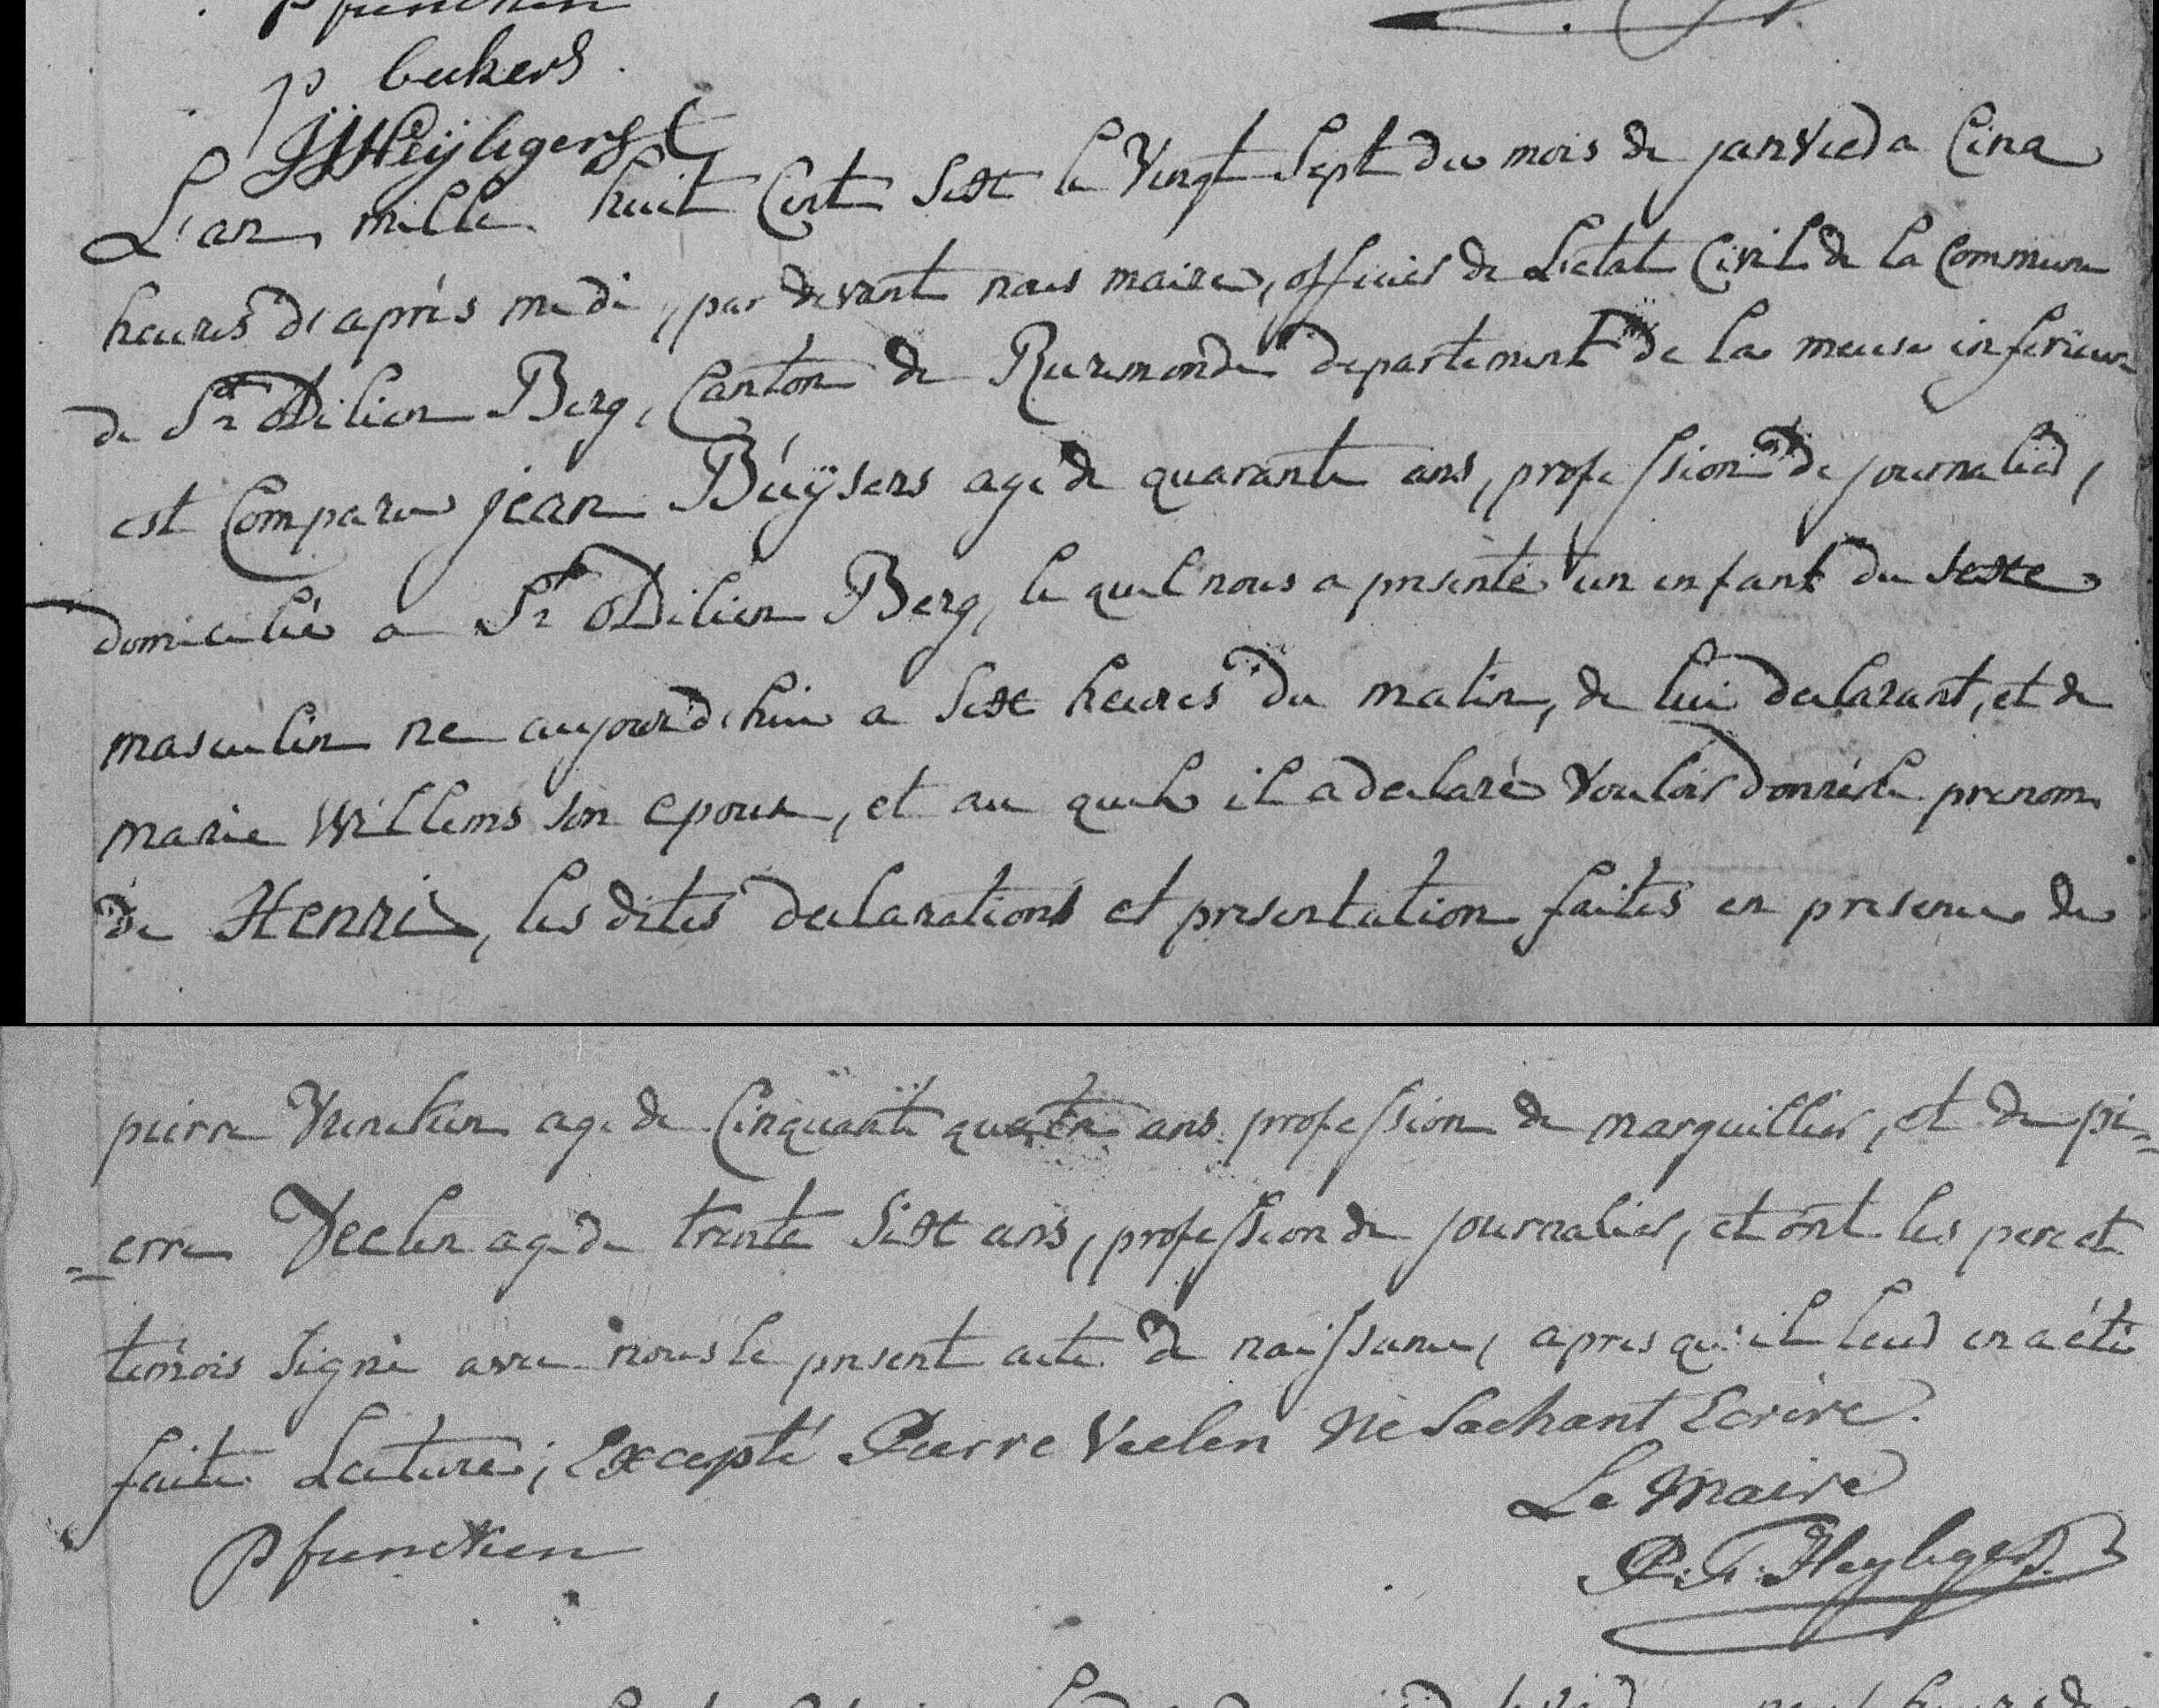 p beckers
JJHeÿligers
L'an mille huit Cent Sixt le Vingt Sept du mois de janvier a Cinq
heures d'après midi, par devant nous maire, officier de L'etat Civil de la Commune
de St Odilien Berg, Canton de Ruremonde departement de la meuse inferieure
est Comparu jean Büÿsers agé de quarante ans, profession de journalier,
domicilié a St Odilien Berg, le quel nous a presenté un enfant du sexte
masculin ne aujourd'hui a Sixt heures du matin, de lui declarant, et de
marie Willems son epouse, et au quel il a declaré Vouloir donner le prenom
de Henri, les dites declarations et presentation faites en presence de
pierre Vuncken agé de Cinquante quatre ans profession de marguillier, et de pi=
=erre Veelen agé de trente Sixt ans, profession de journalier, et ont les pere et
temois Signé avec nous le present acte de naissance, apres qu'il leur en a été
faite Lecture; Excepté Pierre Veelen Ne Sachant Ecrire.
Le Maire
P functien
P. F. Heyligers